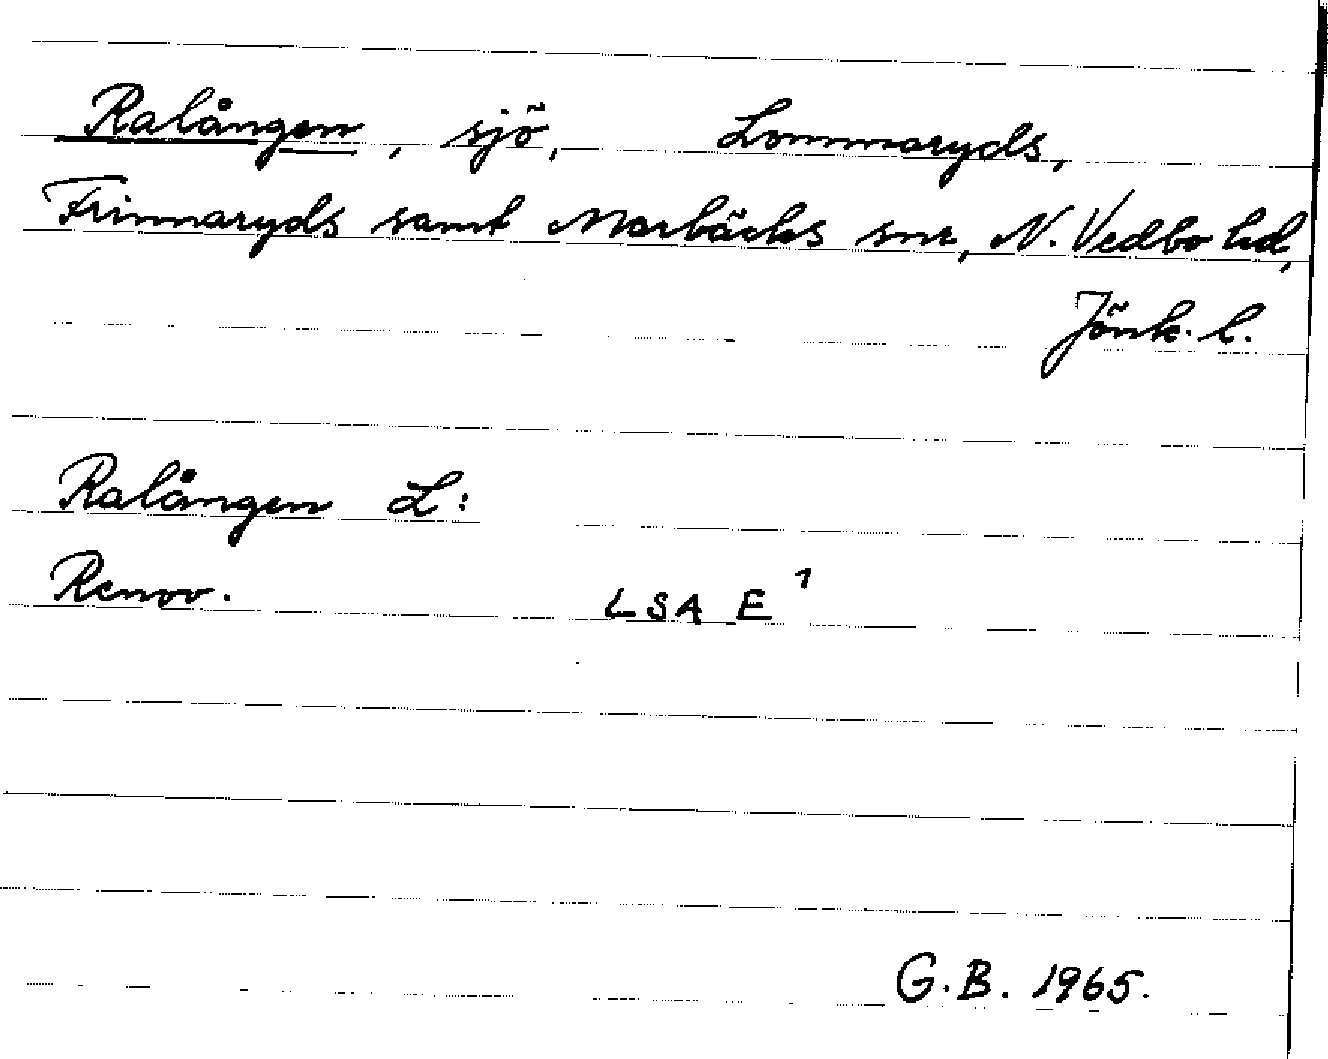 Ralången, sjö, Lommaryds,
Frinnaryds samt Marbäcks snr, N. Vedbo hd,
Jönk. l.
Ralången L:
Renov. LSA E 1
G.B. 1965.